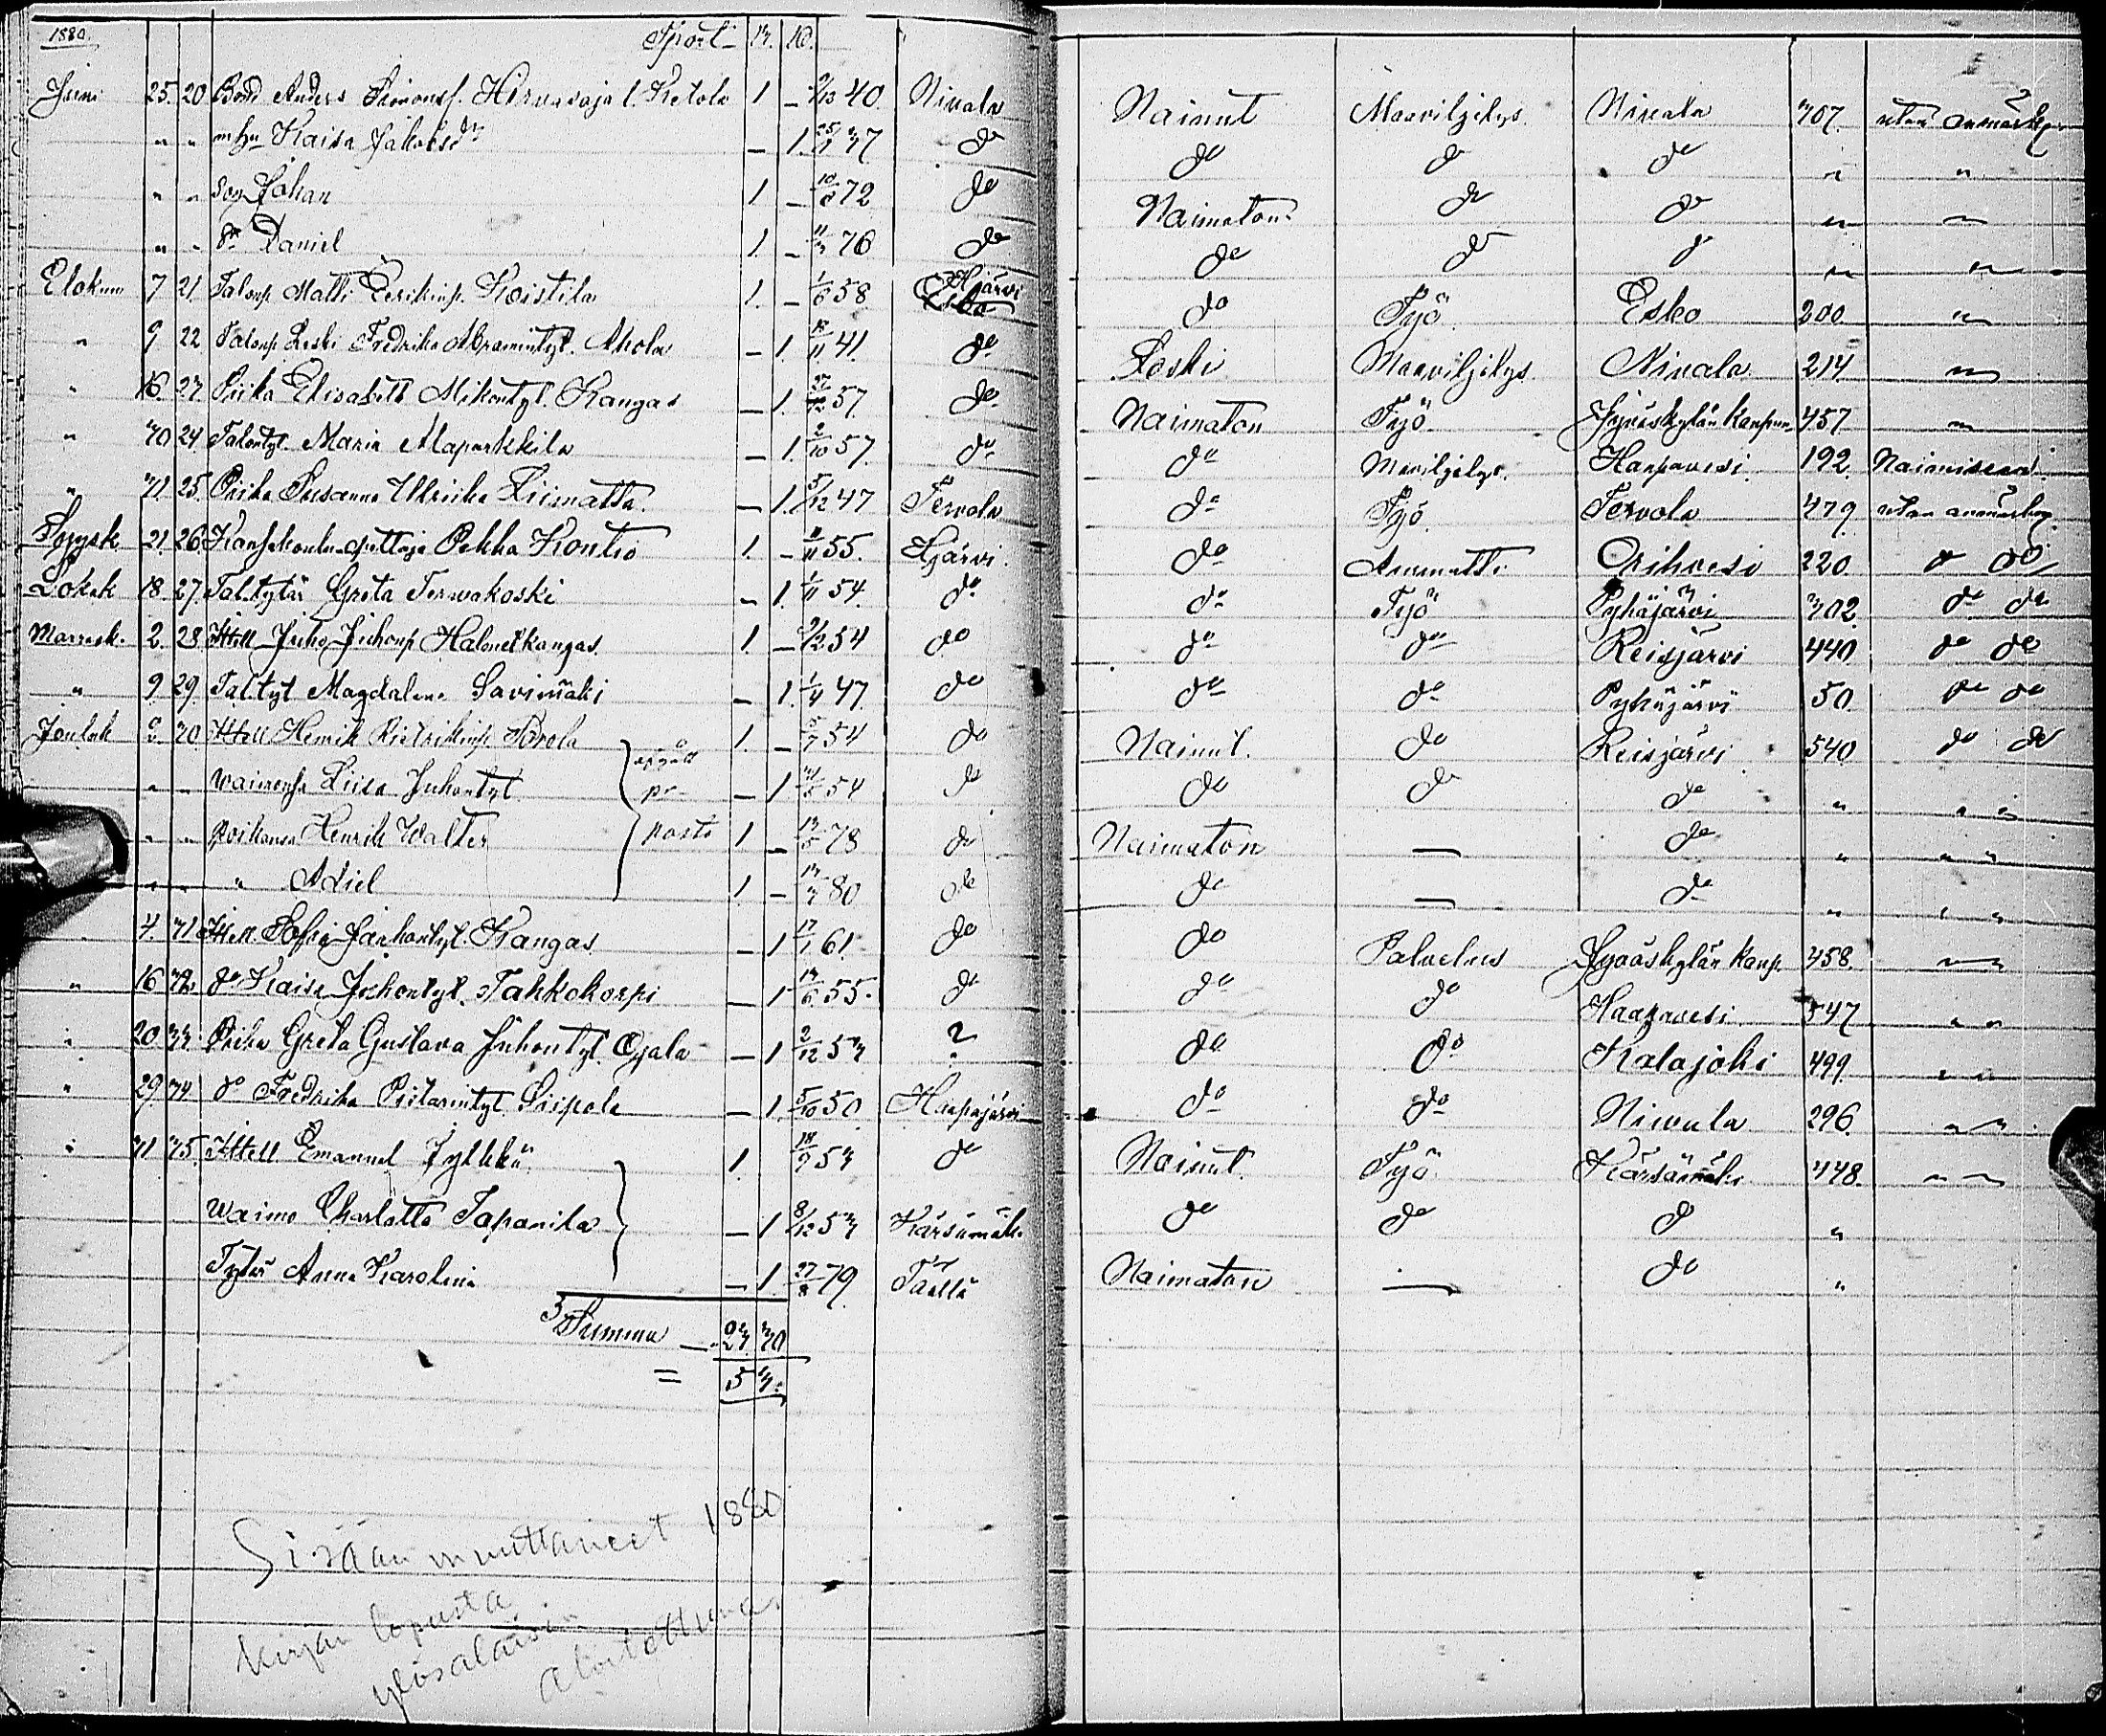 1880. Sport M. K.
Juni 25. 20 Bond Anders Simonss. Hirvasaja l. Ketola 1 – 40 Nivala Nainut Maaviljelys Nivala 307. utan anmärkn.
" " m hu Kaisa Jakobsdr – 1. 25 37 do do do do " "
" " son Johan 1 – 10 72 do Naimaton do do " "
" " Sn Daniel 1. – 11/3 76 do do do do " "
Elokuu 7 21. Talonp. Matti Eerikinp. Koistila 1. – 1/6 58 Hjärvi do Työ Esko 200. "
" 9 22 Talonp. Leski Fredrika Abramintyt. Ahola – 1. 11 41. do Leski Maaviljelys Nivala 214. "
" 16. 23. Piika Elisabett Mikontyt. Kangas – 1. 27/12 57. do Naimaton Työ Jyväskylän kaupun. 457. "
" 30 24. Talontyt. Maria Alaparkkila – 1. 2/10 57. do do Maaviljelys. Haapavesi. 192. Naimisean
" 31. 25. Piika Susanna Ulriika Liimatta. – 1. 5/12 47 Tervola do Työ. Tervola 479. utan anmärkn.
Syysk. 21. 26 Kansakoulu opettaja Pekka Kontio 1. – 11 55. Hjärvi. do Ammatti Orihvesi 220. do do
Lokak 18. 27. Tal. tytär Greta Terwakoski – 1. 1/11 54. do do Työ Pyhäjärvi 302. do do
Marrask. 2. 28. Ittell Juho Juhonp Halonetkangas. 1. – 2/12 54 do do do Reisjärvi 440. do do
" 9. 29. Taltyt Magdalena Savimäki – 1. 1/4 47. do do do Pyhäjärvi 50. do do
Joulok 2. 30 Ittell Henrik Pietrikinp. Porola 1. – 5/7 54 do Nainut. do Reisjärvi 540 do do
" " vaimonsa Liisa Juhontyt. – 1 54 do do do do " " "
" " Poikansa Henrik Walter posto 1 – 13 78 do Naimaton — do " " "
" " " Adiel 1 – 13 80 do do — do " " "
4. 31. Ittell. Sofia Juhontyt. Kangas – 1 17/1 61. do do Palvelus Jyväskylän kaup. 458. "
" 16 32. do Kaisa Juhontyt. Tahkokorpi – 1 13/6 55. do do do Haapavesi 547 " "
" 20 33. Piika Greta Gustava Juhontyt. Ojala – 1 2/12 53 ? do do Kalajoki 499. " "
" 29. 34. do Fredrika Pietarintyt Siipola – 1. 5/10 50. Haapajärvi do do Niwala 296. " "
" 31 35. Ittell Emanuel Jylhkä 1 18/9 53 do Nainut. Työ Kärsämäki 448. " "
waimo Charlotta Tapanila – 1 8/12 53 Kärsämäk. do do do "
Tytär Anna Karolina – 1 27/8 79 Täällä Naimaton — do "
Summa – 23. 30.
= 53.
Sisään muuttaneet 1880
kirjan lopusta
ylösalaisin
aloitettuna.